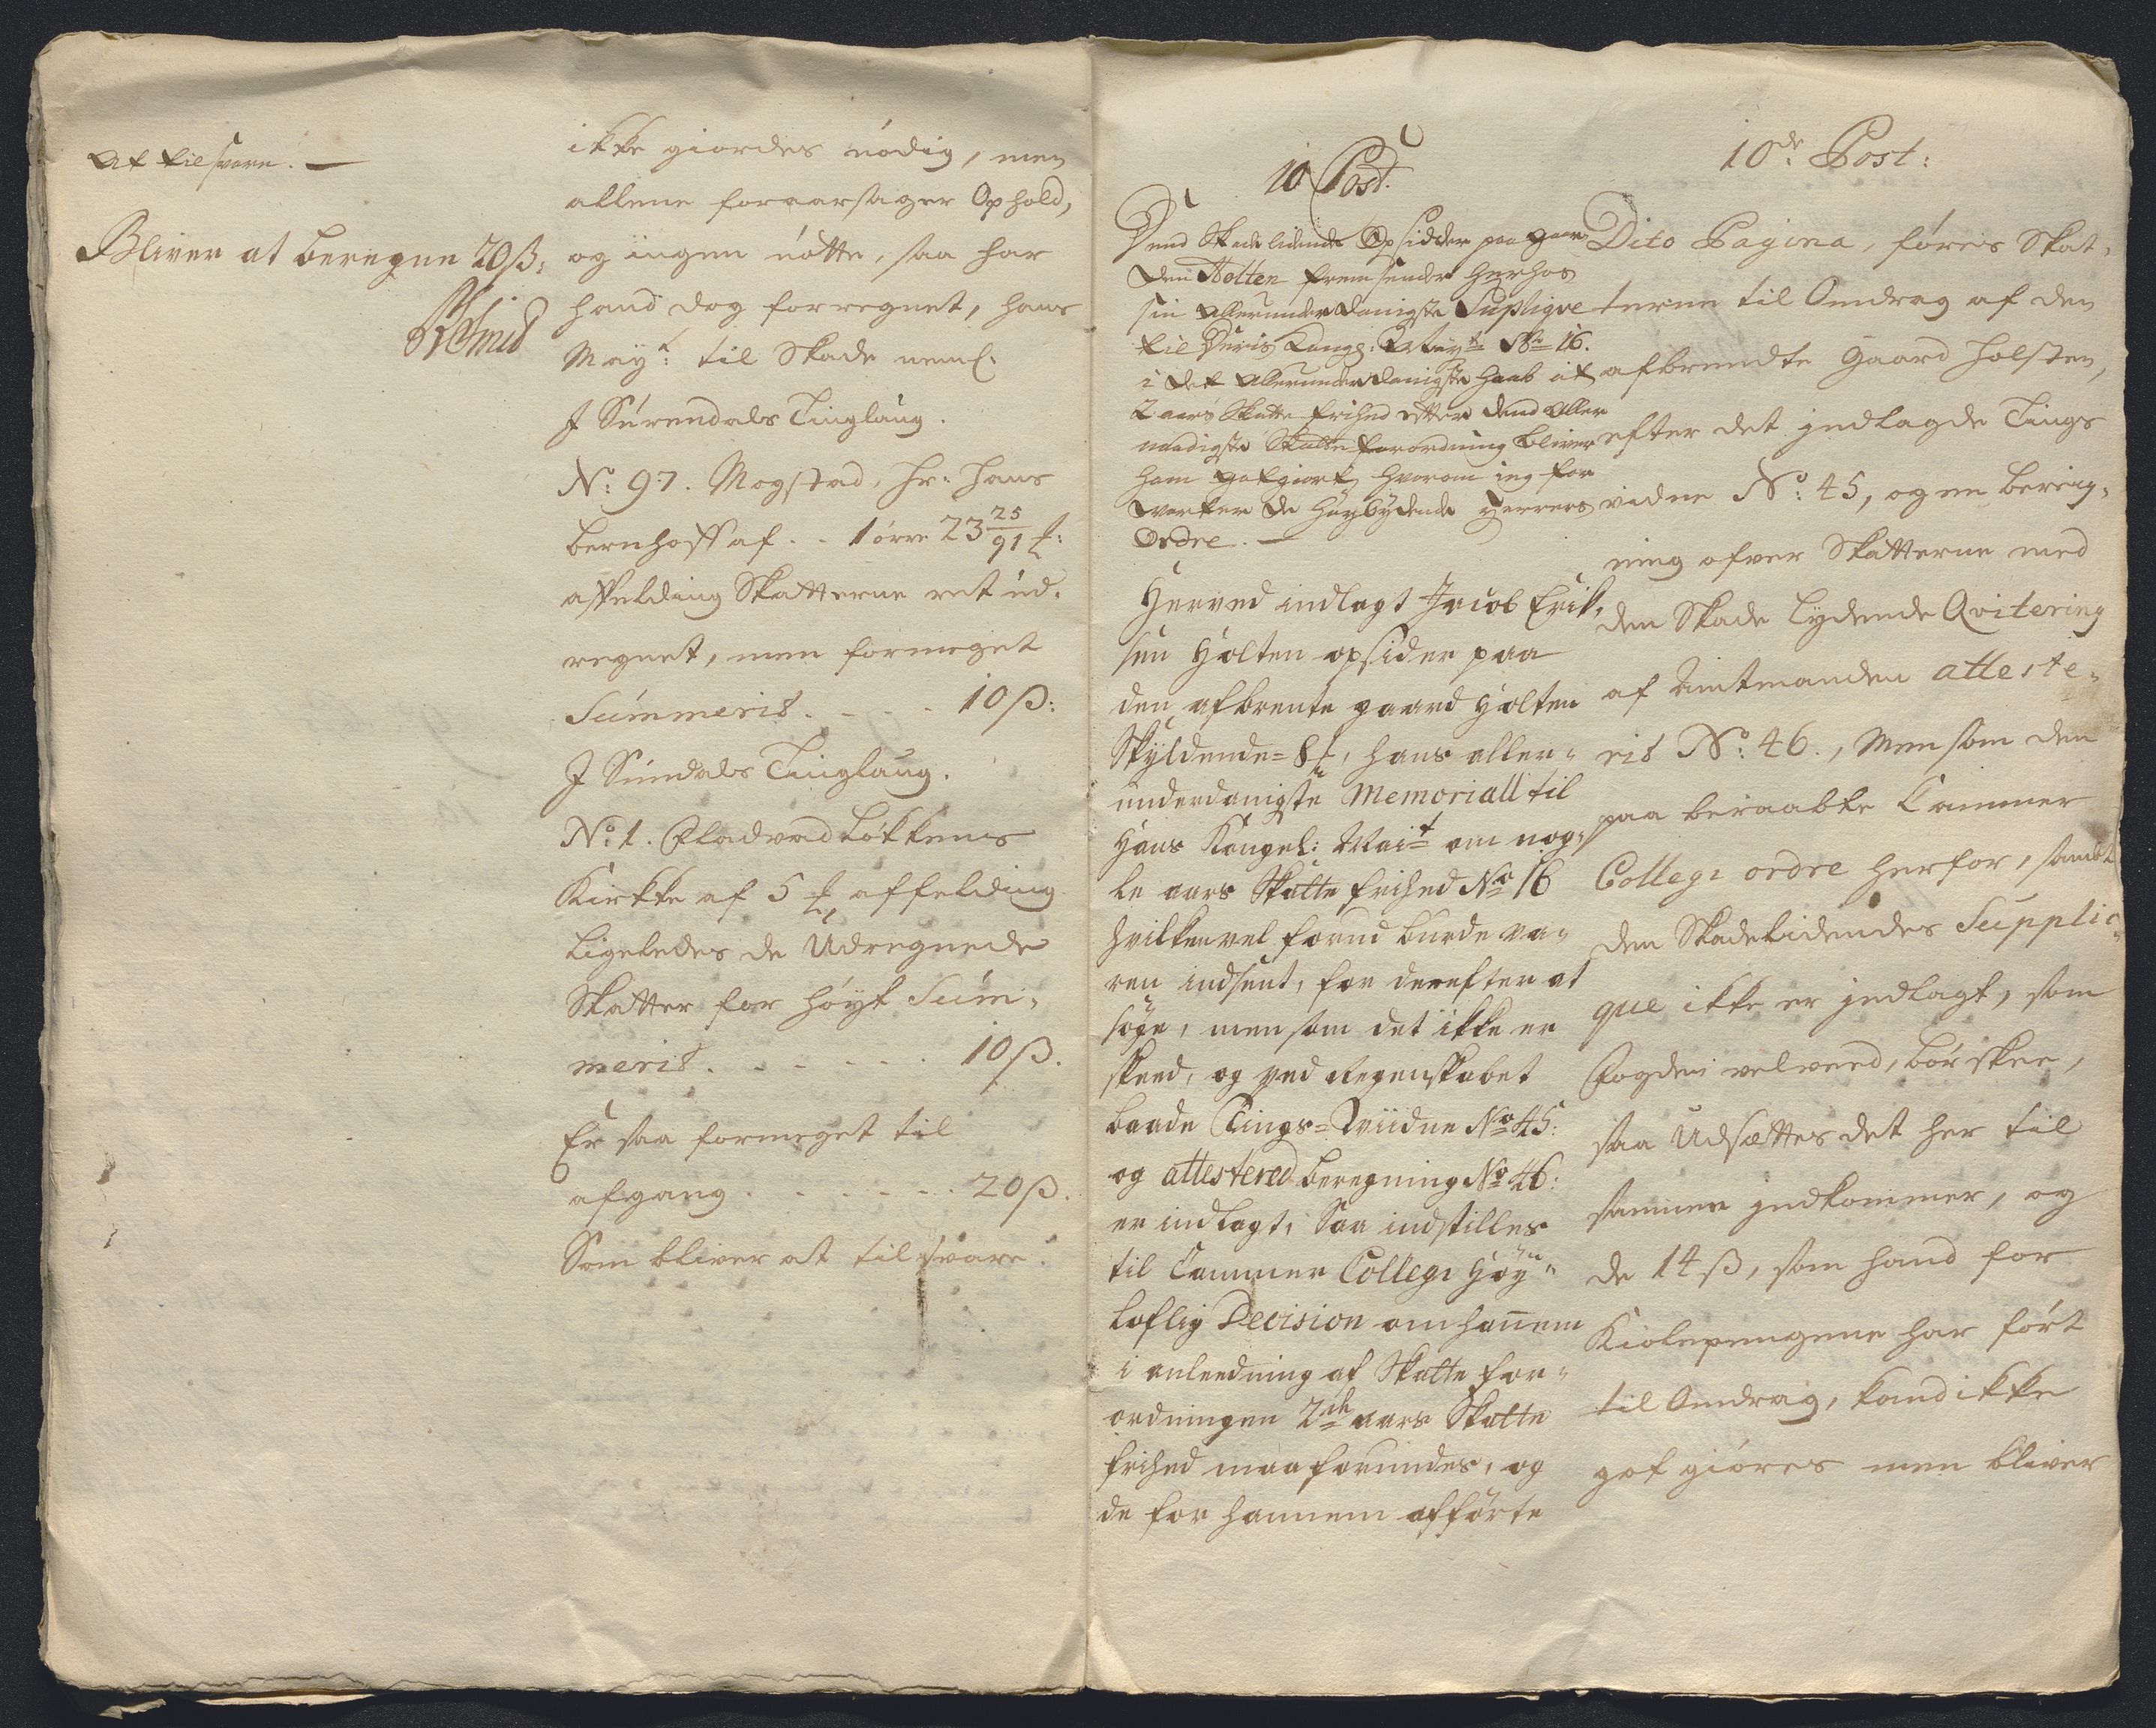 At tilsvare. —
Bliver at beregne 20 ß:
Smid
ikke giordes nödig, men
allene foraarsager Ophold,
og ingen nötte, saa har
hand dog forregnet, hans
May<sup>t</sup>: til Skade neml:
J Surendals Tinglaug.
N<sup>o</sup>: 97. Mogstad, Hr: Hans
Bernhoff af . . 1 örre 23 25/91
affelding Skatterne ret ud-
regnet, men formeget
Summerit. - - - 10 ß:
J Sundals Tinglaug.
N<sup>o</sup> 1. Fladvad Lökkens
Kirkke af 5 affelding
Ligeledes de Udregnede
Skatter for höyt Sum-
merit. - - - - - 10 ß.
Er saa formeget til
afgang . - - - - - 20 ß.
Som bliver at tilsvare.
10 Post.
Dend Skadelidende Opsidder paa gaar-
den Holten fremsender herhos
sin allerunderdanigste Suplique
til Deris Kongl: Mayt No 16.
i det allerunderdanigste Haab at
2 aars Skatte frihed efter dend aller
naadigste Skatte forordning bliver
ham godgiort, hvorom ieg for
venter de höybydende Herrers
Ordre. —
Herved indlagt Jacob Erik-
sen Holten opsider paa
den afbrente gaard Holten
Skyldende = 8, hans aller-
underdanigste Memoriall til
Hans Kongel: Mait om nog-
le aars Skatte frihed No 16
hvilken vel forud burde væ-
ren indsent, for derefter at
söge, men som det ikke er
skeed, og ved Regenskabet
baade Tings-Vidne No 45:
og attestered beregning No 46:
er indlagt, Saa indstilles
til Cammer Collegi Höy-
loflig Decision om hannem
i anleedning af Skatte for-
ordningen 2de aars Skatte
frihed maa forundes, og
de for hannem afförte
10<sup>de</sup> Post:
Dito Pagina, föres Skat-
terne til Omdrag af den
afbrendte Gaard Holsten,
efter det jndlagde Tings
vidne N<sup>o</sup>: 45, og en bereg-
ning ofver Skatterne med
den Skade Lydende Qvitering
af Amtmanden atteste-
rit N<sup>o</sup>: 46., Men som den
paa beraabte Cammer
Collegi ordre herfor, sambt
den Skadelidendes Supplic-
que ikke er jndlagt, som
Fogden velveed, bör skee,
saa Udsættes det her til
samme jndkommer, og
de 14 ß, som hand for
Kiolepengene har fört
til Omdrag, kand ikke
got giöres men bliver